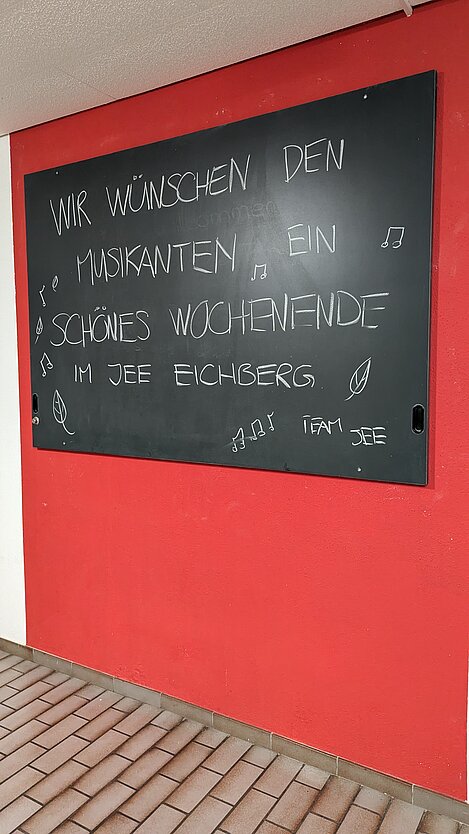 WIR WÜNSCHEN DEN
MUSIKANTEN EIN
SCHÖNES WOCHENENDE
IM JEE EICHBERG
TEAM JEE